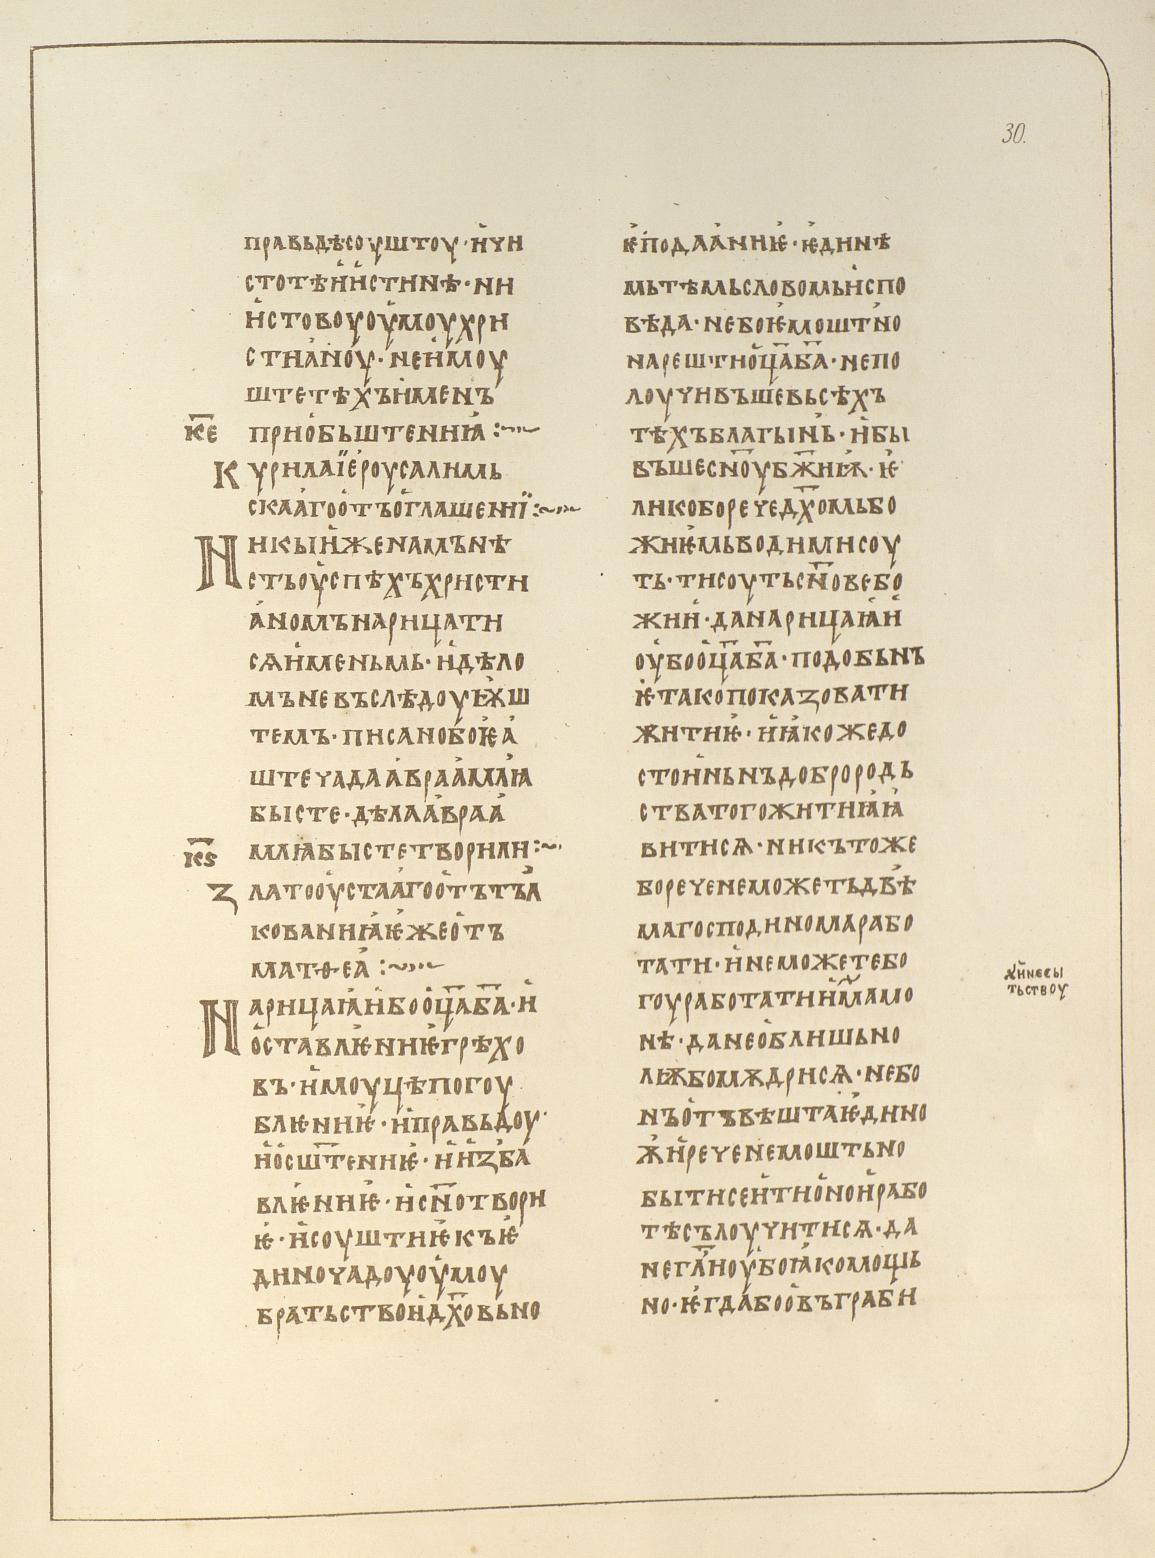 30.
правьдѣсоуштоу·ичи
стотѣиистинѣ·ни
истовоуоумоухри
стиꙗноу·неимоу
штетѣхъименъ
к҃е приобьштениꙗ:~
Курилаїероусалимь
скаагоотъоглашениї:~
Никыиженамънѣ
стьоуспѣхъхристи
аномънарицати
сѧименьмь·идѣло
мъневъслѣдоуѭш
темъ·писанобоѥа
штечадаавраамлꙗ
бысте·дѣлаавраа
к҃ѕ млꙗбыстетворили:~
Златооустаагоотътъл
кованиꙗѥжеотъ
матѳеа:~
Нарицаꙗибооц҃аба҃·и
оставлѥниѥгрѣхо
въ·имоуцѣпогоу
блѥниѥ·иправьдоу·
иосш҃тениѥ·иизба
влѥниѥ·исн҃отвори
ѥ·исоуштиѥкъѥ
диночадоуоумоу
братьствоид҃ховьно
ѥподааниѥ·ѥдинѣ
мьтѣмьсловомьиспо
вѣда·небоѥмоштно
нарештиоц҃аба҃·непо
лоучивъшевьсѣхъ
тѣхъблагынь·ибы
въшесн҃оубж҃иѭ·ѥ
ликоборечед҃хомьбо
жиѥмьводимисоу
ть·тисоутьсн҃овебо
жии·данарицаꙗи
оубооц҃аба҃·подобьнъ
ѥтакопоказовати
житиѥ·иꙗкожедо
стоиньнъдоброродь
стватогожитиꙗꙗ
витисѧ·никътоже
боречененеможетьдъвѣ
магосподиномарабо
тати·инеможетебо
гоуработатиимамо
нѣ·данеоблишьно
лѭбомѫдрисѧ·небо
нъотъвѣштаѥдино
жиречененемоштьно
бытисеитионоирабо
тѣсълоучитисѧ·да
негл҃иоубоꙗкомощь
но·ѥгдабоовъграби
инесы
тьствоу